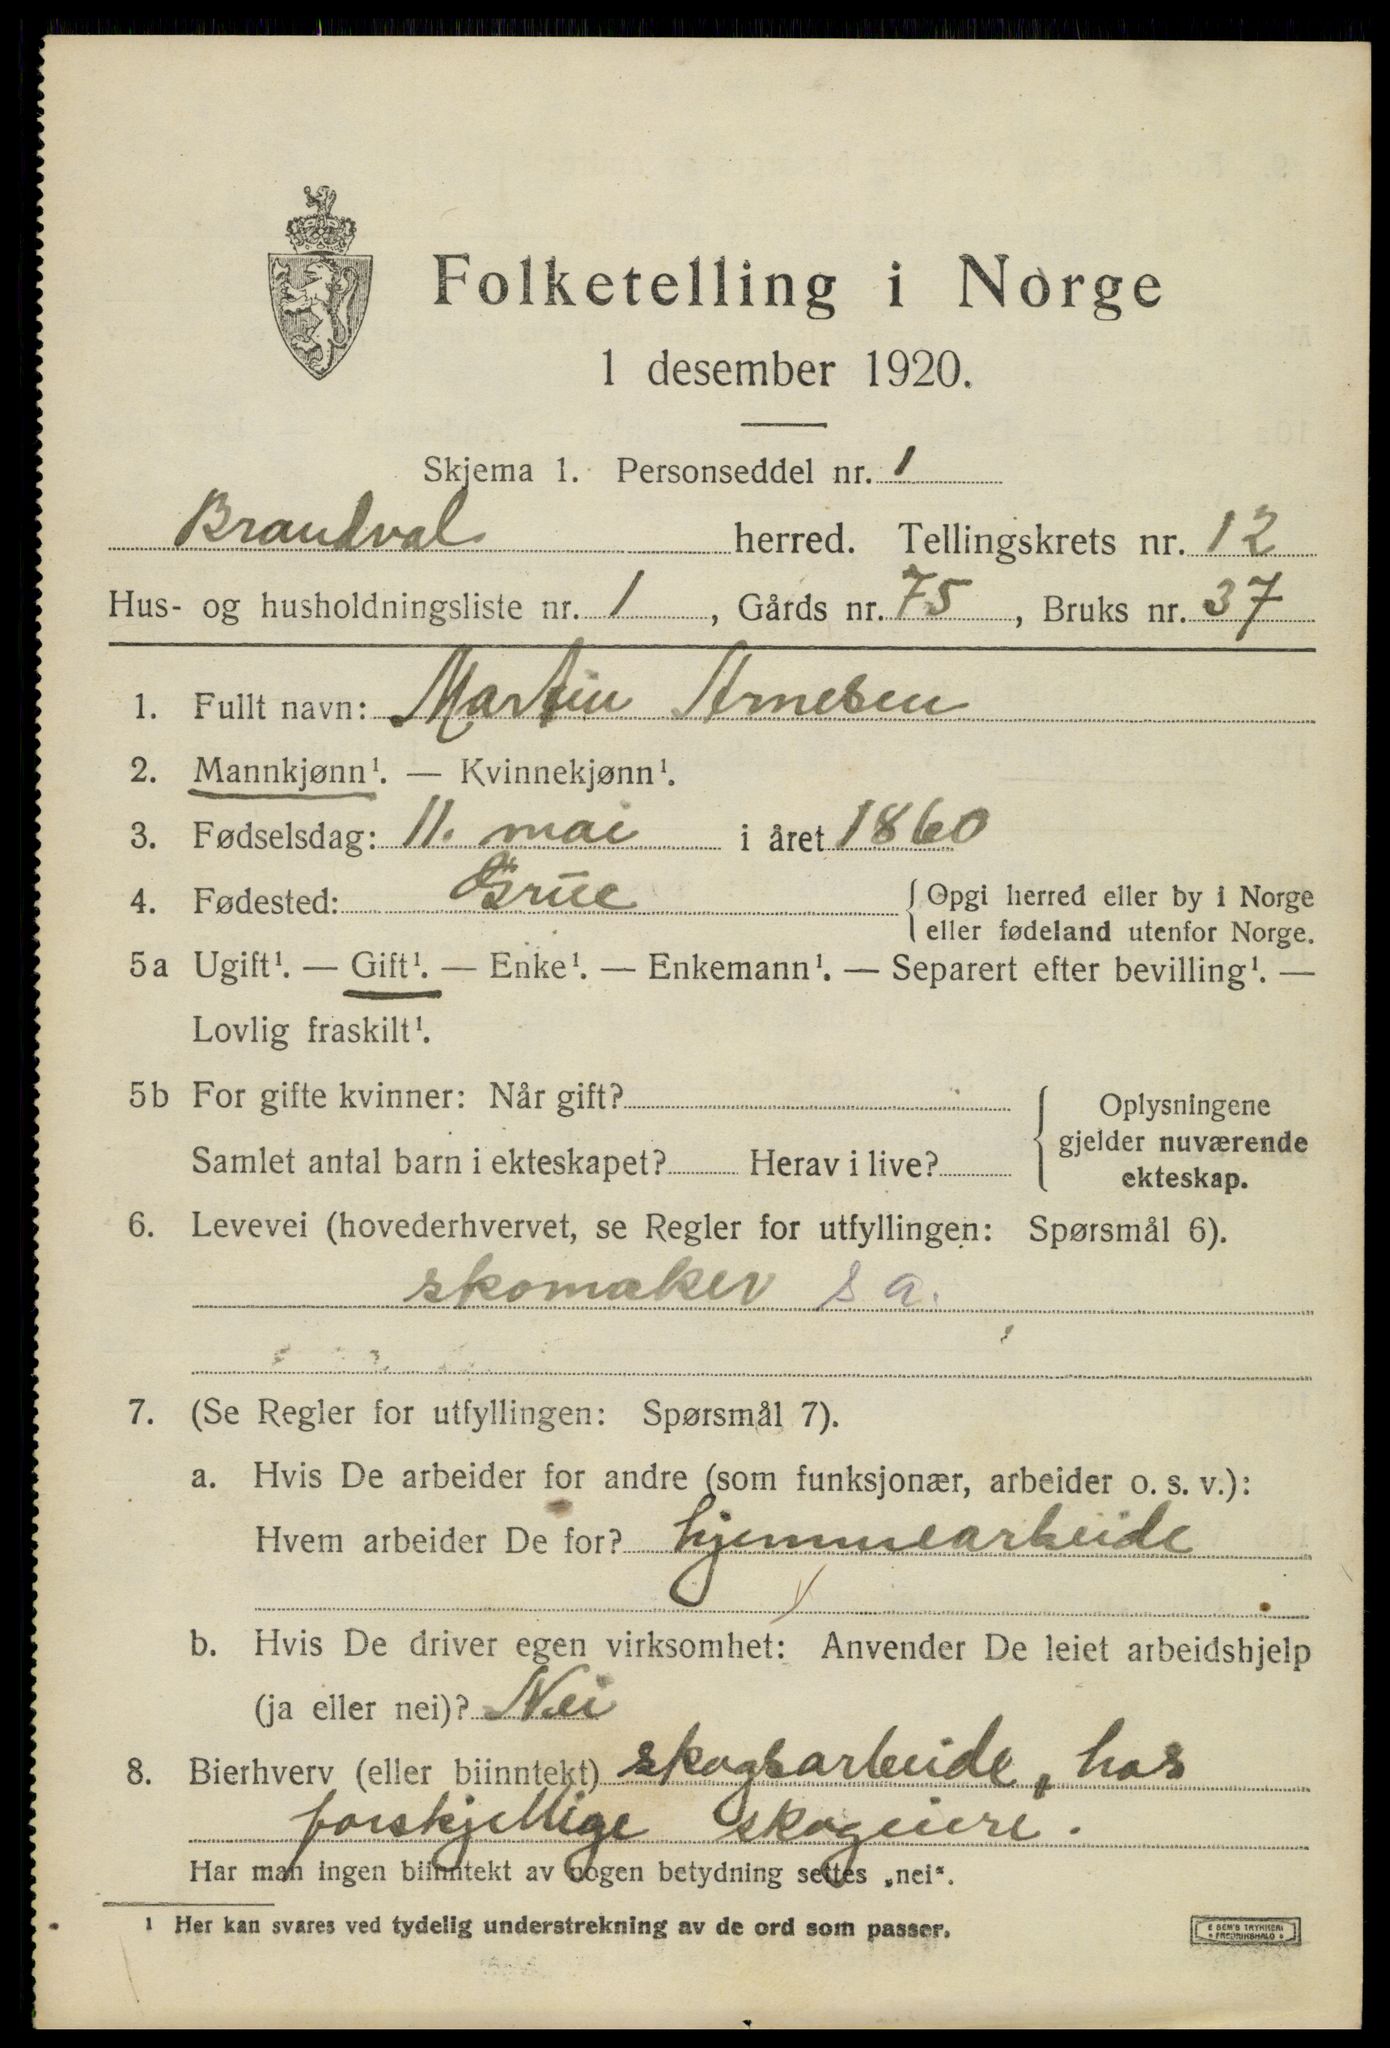 Folketelling i Norge
1 desember 1920.
Skjema 1. Personseddel nr. 1
Brandval herred. Tellingskrets nr. 12
Hus- og husholdningsliste nr. 1, Gårds nr. 75, Bruks nr. 37
1. Fullt navn: Martin Arnesen
2. Mannkjønn¹. — Kvinnekjønn¹.
3. Fødselsdag: 11. mai i året 1860
4. Fødested: Grue {Opgi herred eller by i Norge
eller fødeland utenfor Norge.
5a Ugift¹. — Gift¹. — Enke¹. — Enkemann¹. — Separert efter bevilling¹. —
Lovlig fraskilt¹.
5b For gifte kvinner: Når gift?
Samlet antal barn i ekteskapet? Herav i live?
Oplysningene
gjelder nuværende
ekteskap.
6. Levevei (hovederhvervet, se Regler for utfyllingen: Spørsmål 6).
skomaker s a.
7. (Se Regler for utfyllingen: Spørsmål 7).
a. Hvis De arbeider for andre (som funksjonær, arbeider o. s. v.):
Hvem arbeider De for? hjemmearbeide
b. Hvis De driver egen virksomhet: Anvender De leiet arbeidshjelp
(ja eller nei)? Nei
8. Bierhverv (eller biinntekt) skogsarbeide, hos
forskjellige skogeiere.
Har man ingen biinntekt av nogen betydning settes „nei“.
¹ Her kan svares ved tydelig understrekning av de ord som passer.
E SEM'S TRYKKERI
FREDRIKSHALD